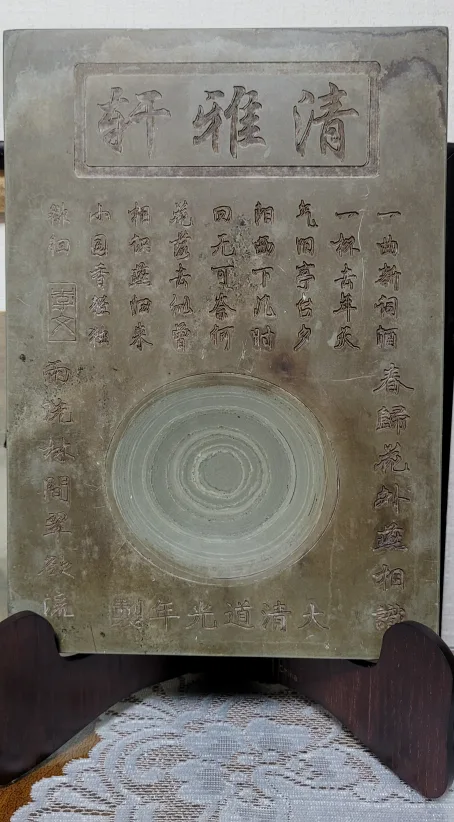 清雅軒
一曲新词酒
一杯去年天
气旧亭台夕
阳西下几时
回无可奈何
花落去似曾
相识燕归来
小园香径独
徘徊
春歸花外燕相識
雨洗林間翠欲流
大清道光年制